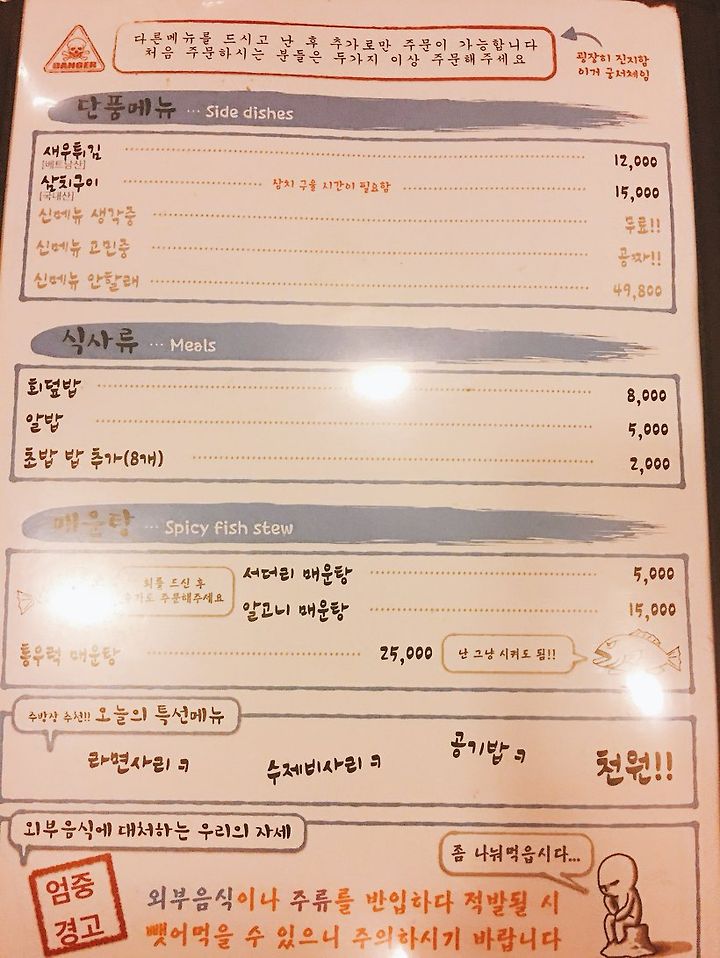 DANGER
다른메뉴를 드시고 난 후 추가로만 주문이 가능합니다
처음 주문하시는 분들은 두가지 이상 주문해주세요
굉장히 진지함
이거 궁서체임
단품메뉴 ... Side dishes
새우튀김 12,000
[베트남산]
삼치구이 삼치 구울 시간이 필요함 15,000
[국내산]
신메뉴 생각중 무료!!
신메뉴 고민중 공짜!!
신메뉴 안할래 49,800
식사류 ... Meals
회덮밥 8,000
알밥 5,000
초밥 밥 추가(8개) 2,000
매운탕 ... Spicy fish stew
회를 드신 후
추가로 주문해주세요
서더리 매운탕 5,000
알고니 매운탕 15,000
통우럭 매운탕 25,000 난 그냥 시켜도 됨!!
주방장 추천!! 오늘의 특선메뉴
라면사리 ㅋ 수제비사리 ㅋ 공기밥 ㅋ 천원!!
외부음식에 대처하는 우리의 자세
좀 나눠먹읍시다...
엄중
경고
외부음식이나 주류를 반입하다 적발될 시
뺏어먹을 수 있으니 주의하시기 바랍니다